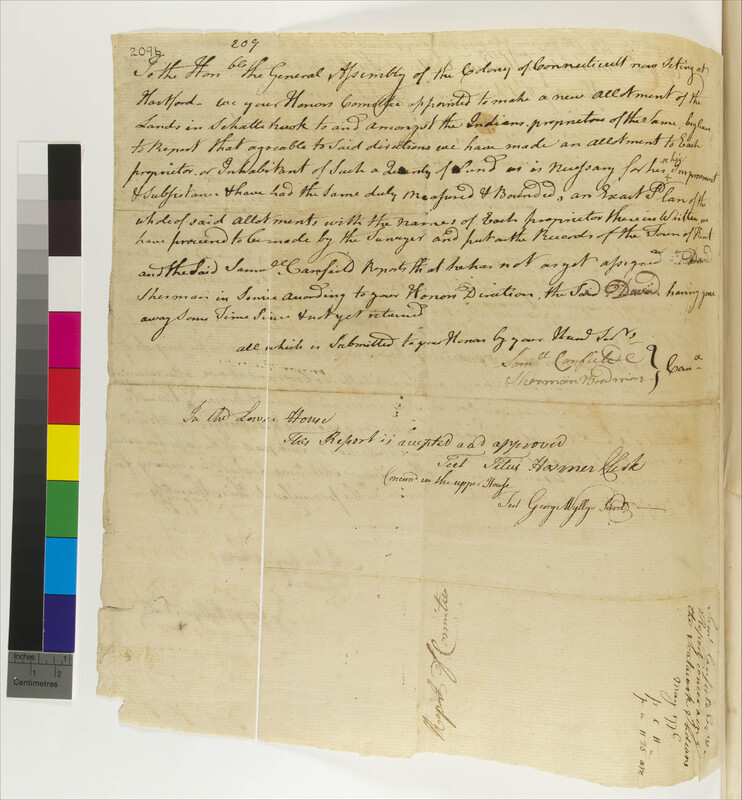 209b
209
To the Honble the General Assembly of the Colony of Connecticutt now Siting at
Hartford - we your Honors Comittee appointed to make a new allotment of the
Lands in Schattekook to and amongst the Indians, proprietors of the Same, beg leave
to Report that agreable to Said directions we have made an allotment to Each
proprietor, or Inhabitant of Such a Quantity of Land as is Necessary for his Improvement
& Subsistance & have had the Same duly Measured & Bounded, an Exact Plan of the
whole of said allotments with the names of Each proprietor therein Written we
have procured to be made by the Survayer and put on the Records of the Town of Kent
and the Said Samuel Canfield Reports that he has not as yet assigned David
Sherman in Service according to your Honors Direction, the Said David having gone
away Some Time Since & not yet returned
all which is Submitted to your Honors by your Humb Servts
Saml Canfield
Sherman Boardman
Comte
In the Lower House
This Report is accepted and approved
Test Titus Hosmer Clerk
Concurrd in the upper House
Test George Wyllys Secrety
Report of Committee
Saml Canfield
Report concerning
the Indians
May 1776